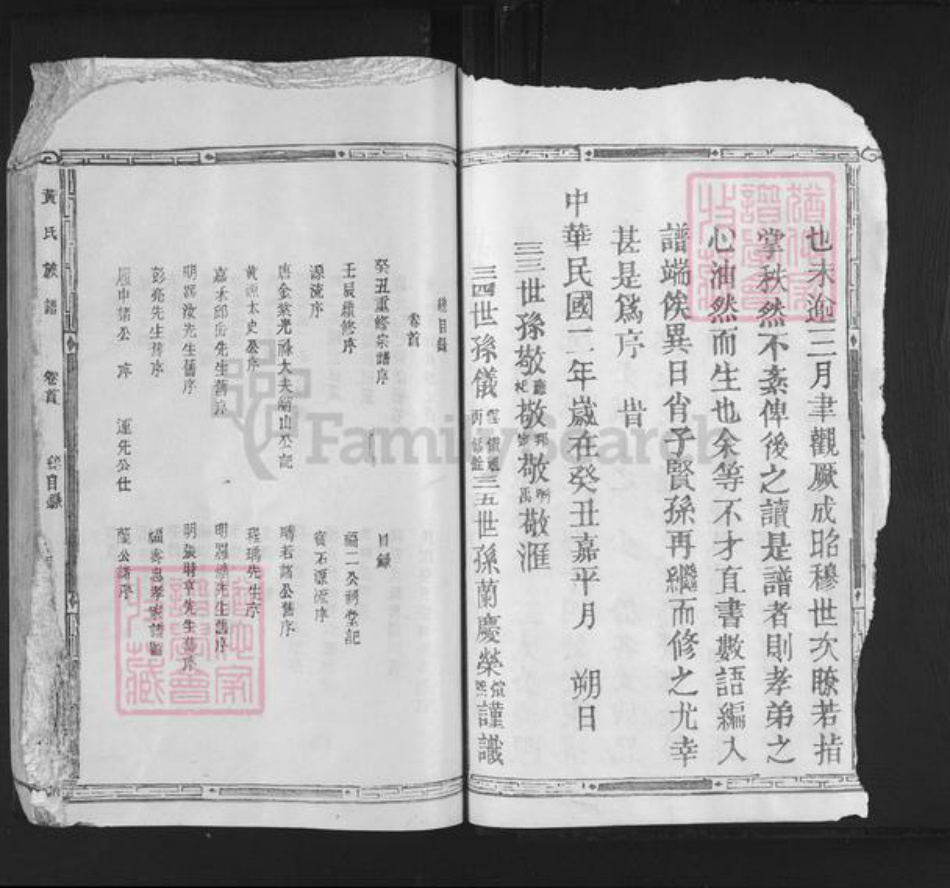 也未迎三月聿觀厥成昭穆世次瞭若指
掌秩然不紊俾後之讀是譜者則孝弟之
心油然而生也余等不才直書數語編入
譜端俟異日肖子賢孫再繼而修之尤幸
甚是爲序 旹
中華民國二年歲在癸丑嘉平月 朔日
三三世孫敬敬敬敬滙
三四世孫儀三五世孫蘭慶榮謹識
總目錄
卷首 目錄
癸丑重修宗譜序 福二公祠堂記
壬辰續修序 源流序
源流序
唐金紫光祿大夫峭山公記 疇若諸公舊序
黃太史公序 瑀先生序
嘉禾邱岳先生舊序 明先生舊序
明先生舊序 明張時亨先生舊序
彭亮先生舊序 忠孝家
諸公 序 運先公仕 公諸序
黃氏族譜 卷首 總目錄
FamilySearch